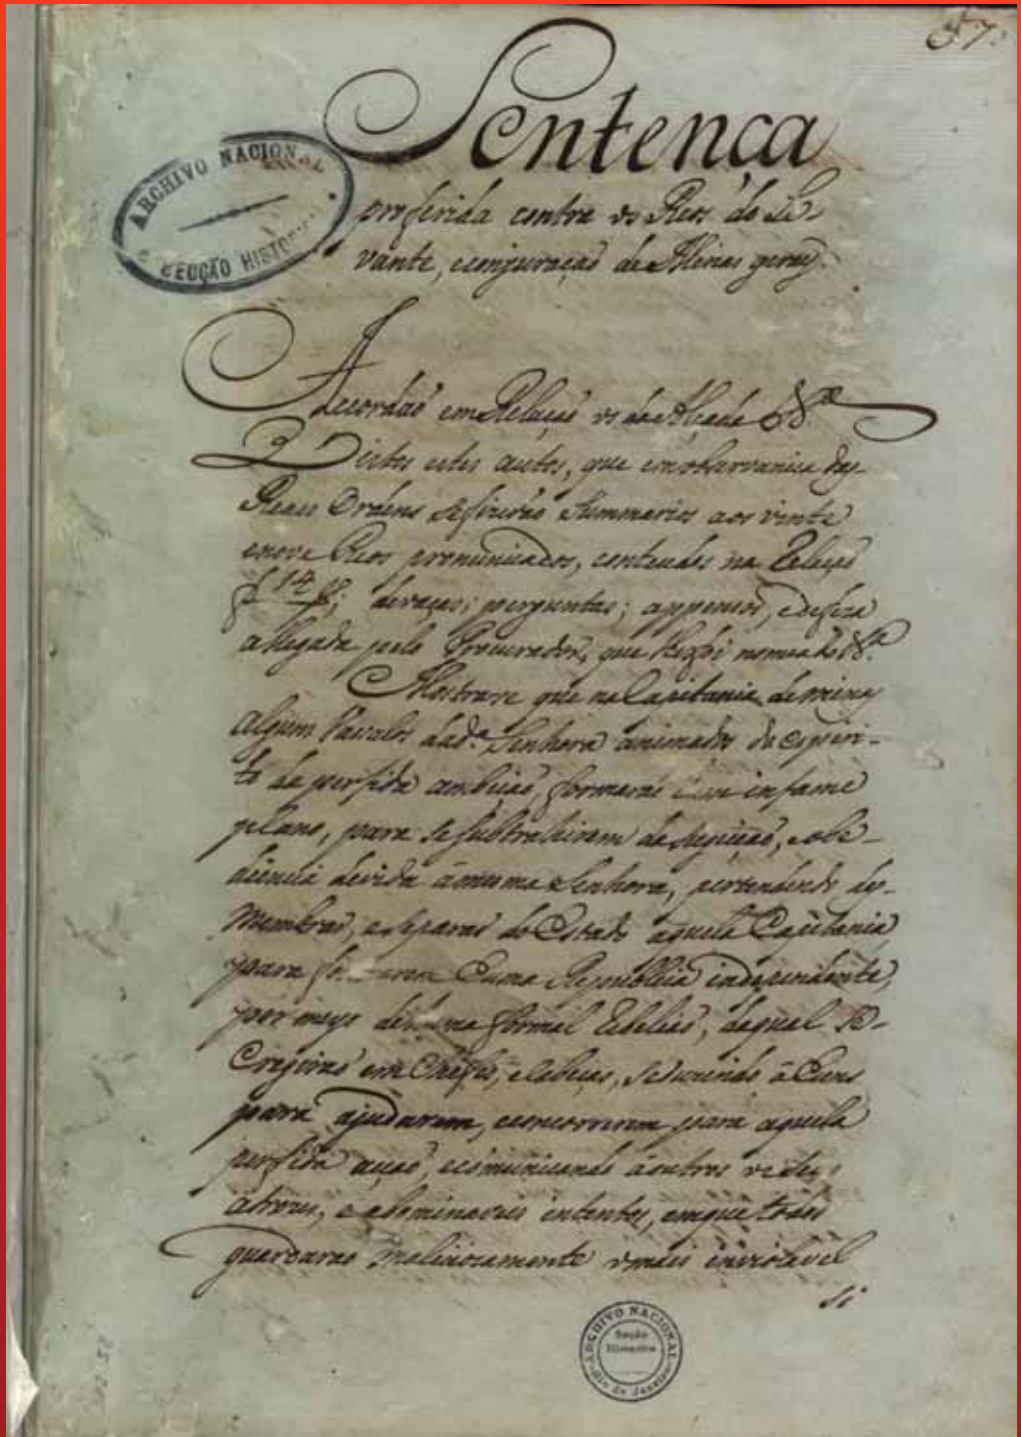 57.
Sentença
proferida contra os Reos do Le-
vante, e conjuração de Minas geraes.
ARCHIVO NACIONAL
SECÇÃO HISTORICA
Accordaõ em Relaçaõ os da Alçada &ª
Vistos estes autos, que em observancia das
Reaes Ordens se fizeraõ Summarios aos vinte
e nove Reos pronunciados, conteudos na Relaçaõ
f 14 devaças; perguntas; appensos, e defeza
allegada pelo Procurador, que lhe foi nomeado &ª
Mostrase que na Capitania de Minas
alguns Vassalos da dª Senhora animados do espiri-
to de perfida ambiçaõ, formaraõ hum infame
plano, para se subtrahirem da sugeiçaõ, e obe-
diencia devida â mesma Senhora, pertendendo des-
membrar, e separar do Estado aquela Capitania,
para formarem huma Republica independente,
por meyo de huma formal rebeliaõ, da qual se
Erigiraõ em Chefes, e Cabeças, seduzindo â huns
para ajudarem, e concorrerem para aquela
perfida açaõ, e comunicando â outros os seus
atrozes, e abominaveis intentos, em que todos
guardaraõ maliciozamente o mais inviolavel
si
ARCHIVO NACIONAL
Secção
Historica
Rio de Janeiro